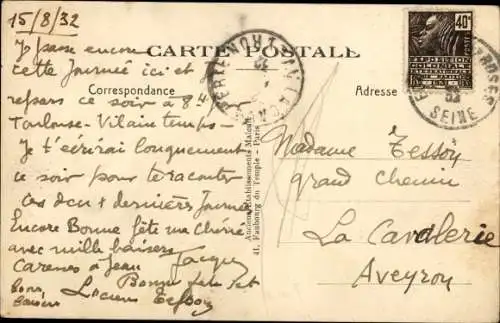 15/8/32
CARTE POSTALE
Correspondance
Adresse
Je passe encore
cette Journée ici et
repars ce soir à 8 H
Toulouse - Vilain temps -
Je t'écrirai longuement
ce soir pour te raconter
ces deux dernières Journées
Encore Bonne fête ma Chérie
avec mille baisers
Caresses à Jean Jacques
Bons Baisers
Lucien Tessoy
Anciens Etablissements Malcuit
41, Faubourg du Temple - Paris
40c
POSTES
EXPOSITION
COLONIALE
INTERNATIONALE
PARIS 1931
SEINE
Madame Tessoy
grand chemin
La Cavalerie
Aveyron